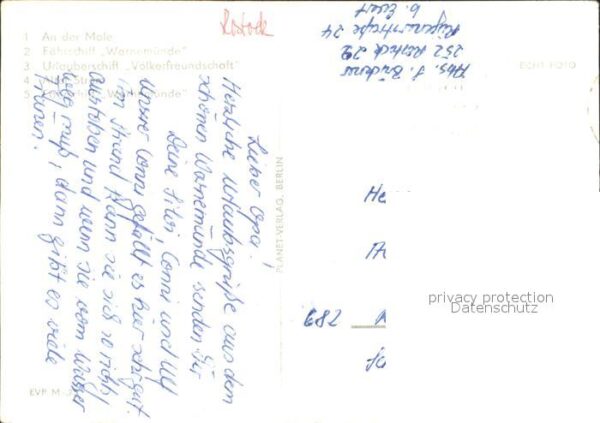 1 An der Mole
2 Fährschiff „Warnemünde"
3 Urlauberschiff „Völkerfreundschaft"
4 Alter Strom
5
EVP M
PLANET-VERLAG, BERLIN
ECHT FOTO
Rostock
Lieber Opa!
Herzliche Urlaubsgrüße aus dem
schönen Warnemünde senden Dir
Deine Silvi, Conni und Ulf
Unserer Conni gefällt es hier sehr gut.
Am Strand kann sie sich so richtig
austoben und wenn sie vom Wasser
weg muß, dann gibt es viele
Tränen.
Abs.
252 Rostock 29
24
b. Ewert
He
687
289
privacy protection
Datenschutz